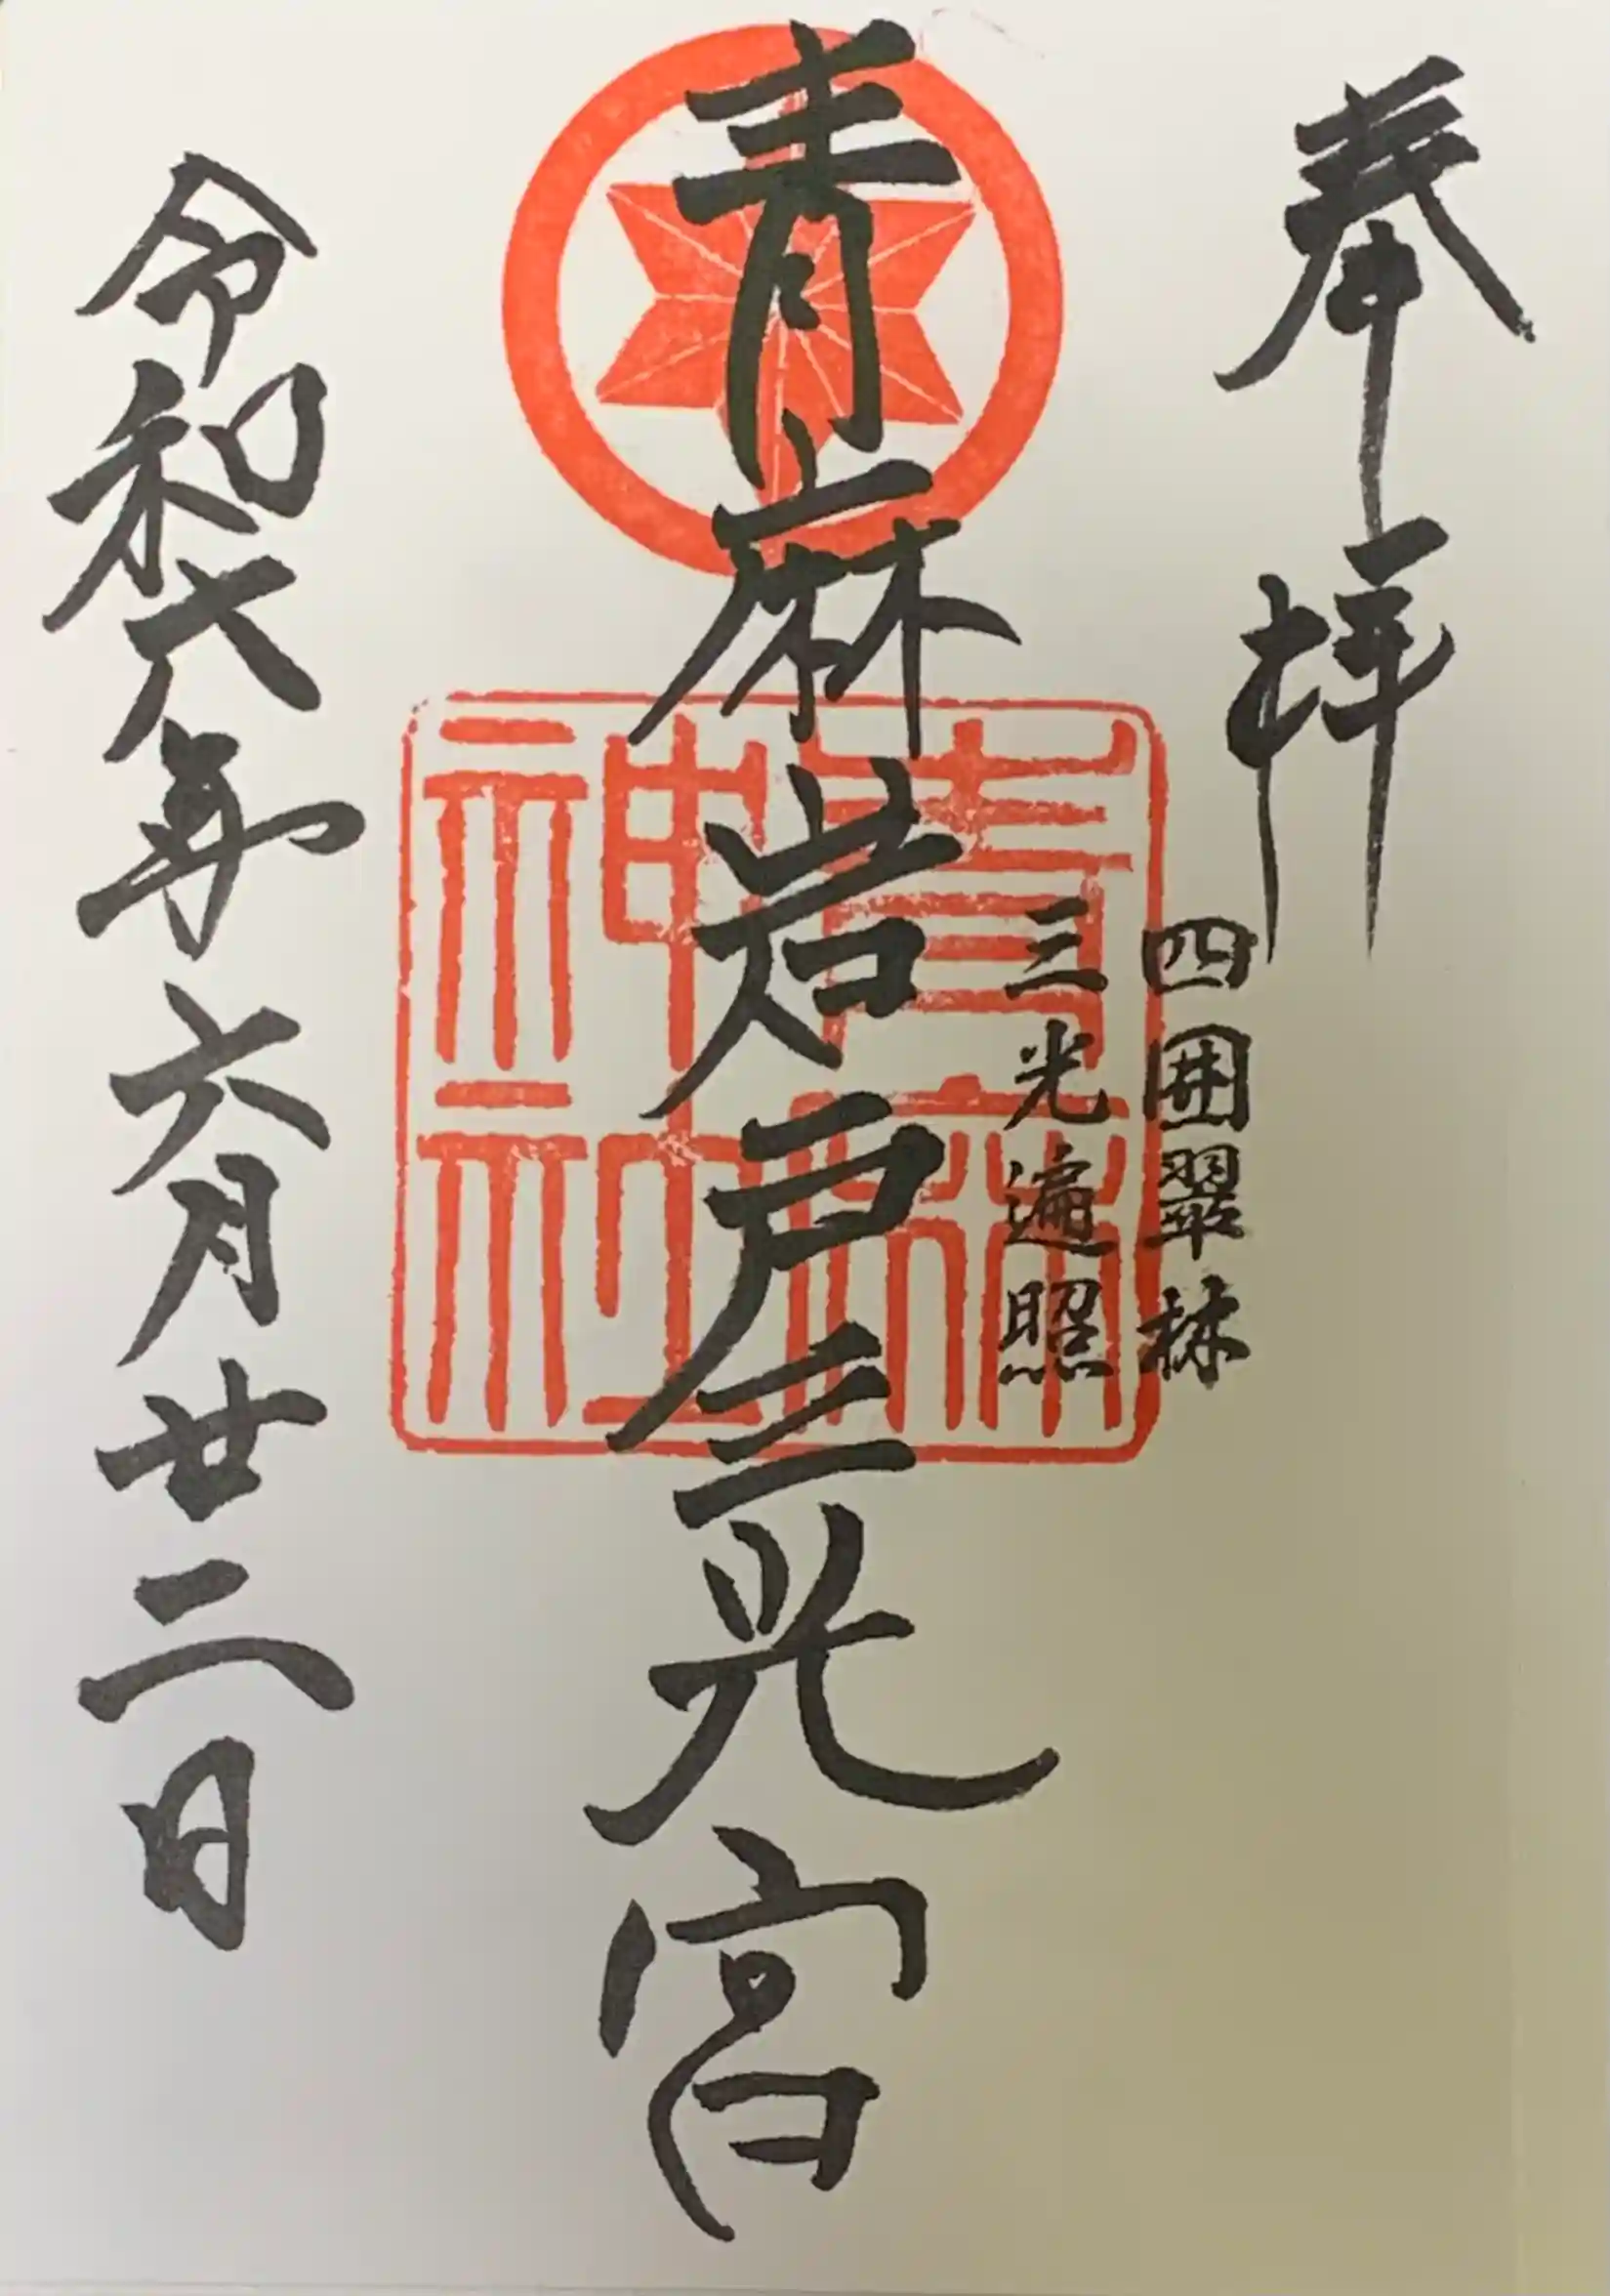 奉拝
四囲翠林
三光遍照
青麻岩戸三光宮
青麻神社
令和六年六月廿二日